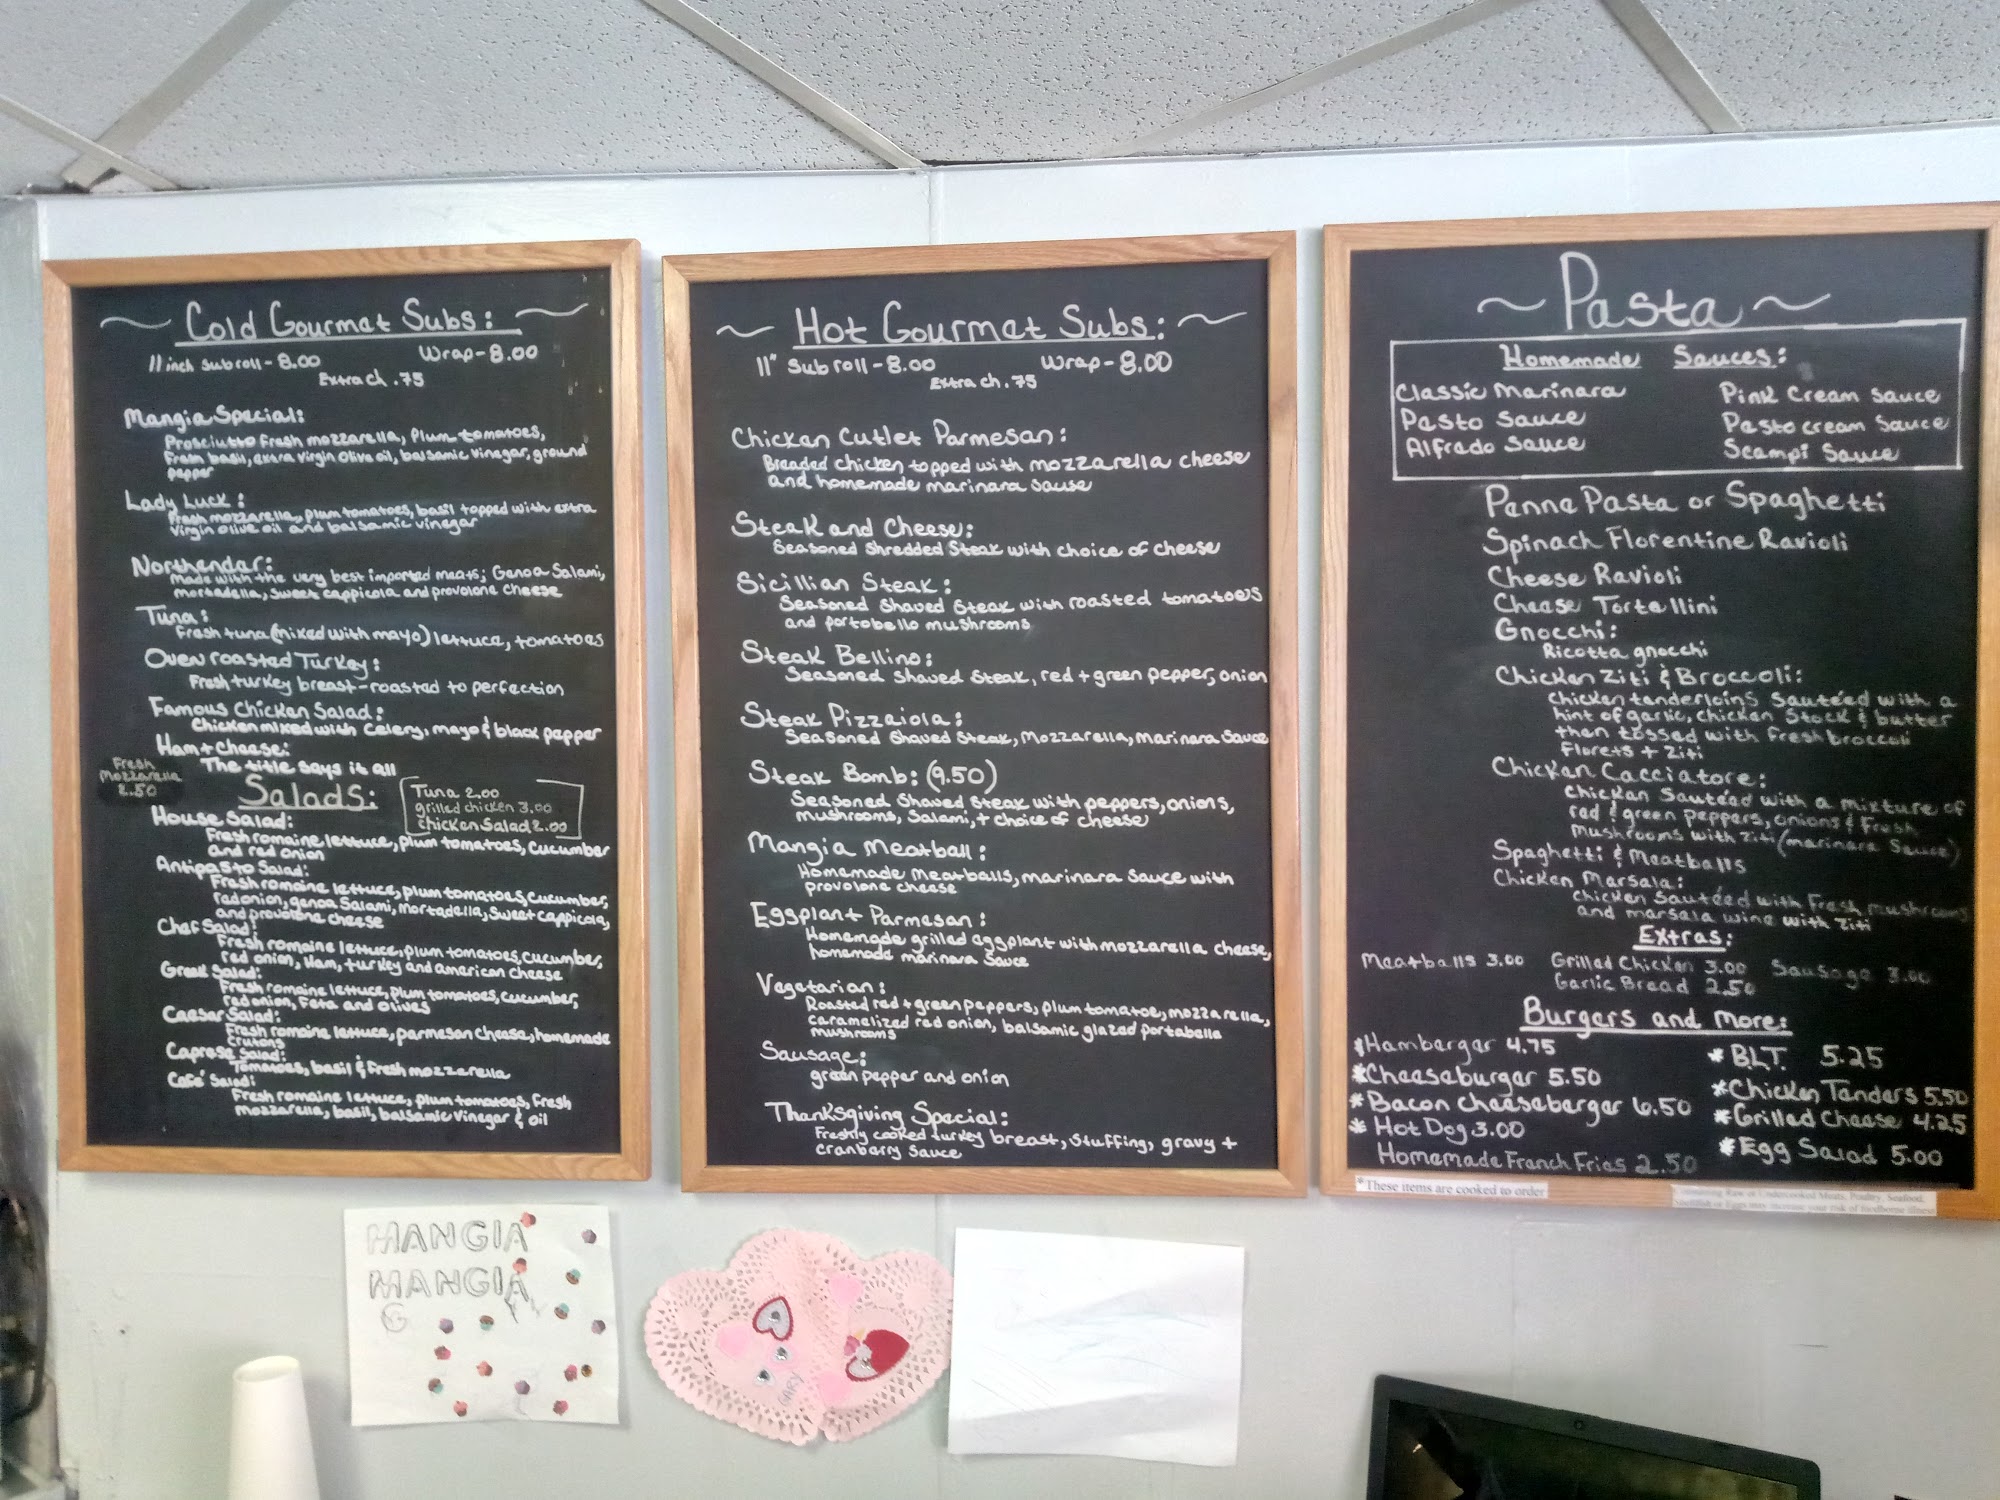 Cold Gourmet Subs:
11 inch Sub roll - 8.00 Wrap - 8.00
Extra ch .75
Mangia Special:
Prosciutto Fresh mozzarella, Plum tomatoes,
Fresh basil, extra virgin olive oil, balsamic vinegar, ground
pepper
Lady Luck:
Fresh mozzarella, plum tomatoes, basil topped with extra
virgin olive oil and balsamic vinegar
Northender:
Made with the very best imported meats; Genoa Salami,
mortadella, sweet cappicola and provolone cheese
Tuna:
Fresh tuna (mixed with mayo) lettuce, tomatoes
Oven roasted Turkey:
Fresh turkey breast - roasted to perfection
Famous Chicken Salad:
Chicken mixed with Celery, mayo & black pepper
Ham + cheese:
The title says it all
Fresh
Mozzarella
2.50
Salads:
Tuna 2.00
grilled chicken 3.00
chicken Salad 2.00
House Salad:
Fresh romaine lettuce, plum tomatoes, cucumber
and red onion
Antipasto Salad:
Fresh romaine lettuce, plum tomatoes, cucumber,
red onion, genoa Salami, Mortadella, Sweet cappicola,
and provolone cheese
Chef Salad:
Fresh romaine lettuce, plum tomatoes, cucumber,
red onion, Ham, turkey and american cheese
Greek Salad:
Fresh romaine lettuce, plum tomatoes, cucumber,
red onion, Feta and olives
Caesar Salad:
Fresh romaine lettuce, parmesan cheese, homemade
crutons
Caprese Salad:
Tomatoes, basil & fresh mozzarella
Café Salad:
Fresh romaine lettuce, plum tomatoes, fresh
mozzarella, basil, balsamic vinegar & oil
Hot Gourmet Subs:
11" Sub roll - 8.00 Wrap - 8.00
Extra ch .75
Chicken Cutlet Parmesan:
Breaded chicken topped with mozzarella cheese
and homemade marinara sause
Steak and Cheese:
Seasoned Shredded Steak with choice of cheese
Sicillian Steak:
Seasoned Shaved Steak with roasted tomatoes
and portobello mushrooms
Steak Bellino:
Seasoned Shaved Steak, red + green pepper, onion
Steak Pizzaiola:
Seasoned Shaved Steak, Mozzarella, marinara Sauce
Steak Bomb: (9.50)
Seasoned Shaved Steak with peppers, onions,
mushrooms, Salami, + choice of cheese
Mangia Meatball:
Homemade Meatballs, marinara Sauce with
provolone cheese
Eggplant Parmesan:
Homemade grilled eggplant with mozzarella cheese,
homemade marinara Sauce
Vegetarian:
Roasted red + green peppers, plum tomatoe, mozzarella,
caramelized red onion, balsamic glazed portabella
mushrooms
Sausage:
green pepper and onion
Thanksgiving Special:
Freshly cooked turkey breast, Stuffing, gravy +
cranberry Sauce
~ Pasta ~
Homemade Sauces:
Classic Marinara Pink Cream Sauce
Pesto Sauce Pesto cream Sauce
Alfredo Sauce Scampi Sauce
Penne Pasta or Spaghetti
Spinach Florentine Ravioli
Cheese Ravioli
Cheese Tortellini
Gnocchi:
Ricotta gnocchi
Chicken Ziti & Broccoli:
Chicken tenderloins Sautéed with a
hint of garlic, chicken Stock & butter
then tossed with Fresh broccoli
Florets + Ziti
Chicken Cacciatore:
Chicken Sautéed with a mixture of
red & green peppers, onions & Fresh
Mushrooms with Ziti (marinara Sauce)
Spaghetti & Meatballs
Chicken Marsala:
chicken Sautéed with Fresh mushrooms
and marsala wine with Ziti
Extras:
Meatballs 3.00 Grilled Chicken 3.00 Sausage 3.00
Garlic Bread 2.50
Burgers and more:
*Hamberger 4.75 *BLT. 5.25
*Cheeseburger 5.50 *Chicken Tenders 5.50
*Bacon Cheeseberger 6.50 *Grilled Cheese 4.25
*Hot Dog 3.00 *Egg Salad 5.00
Homemade French Fries 2.50
*These items are cooked to order
Consuming Raw or Undercooked Meats, Poultry, Seafood,
Shellfish or Eggs may increase your risk of foodborne illness
MANGIA
MANGIA
GARY